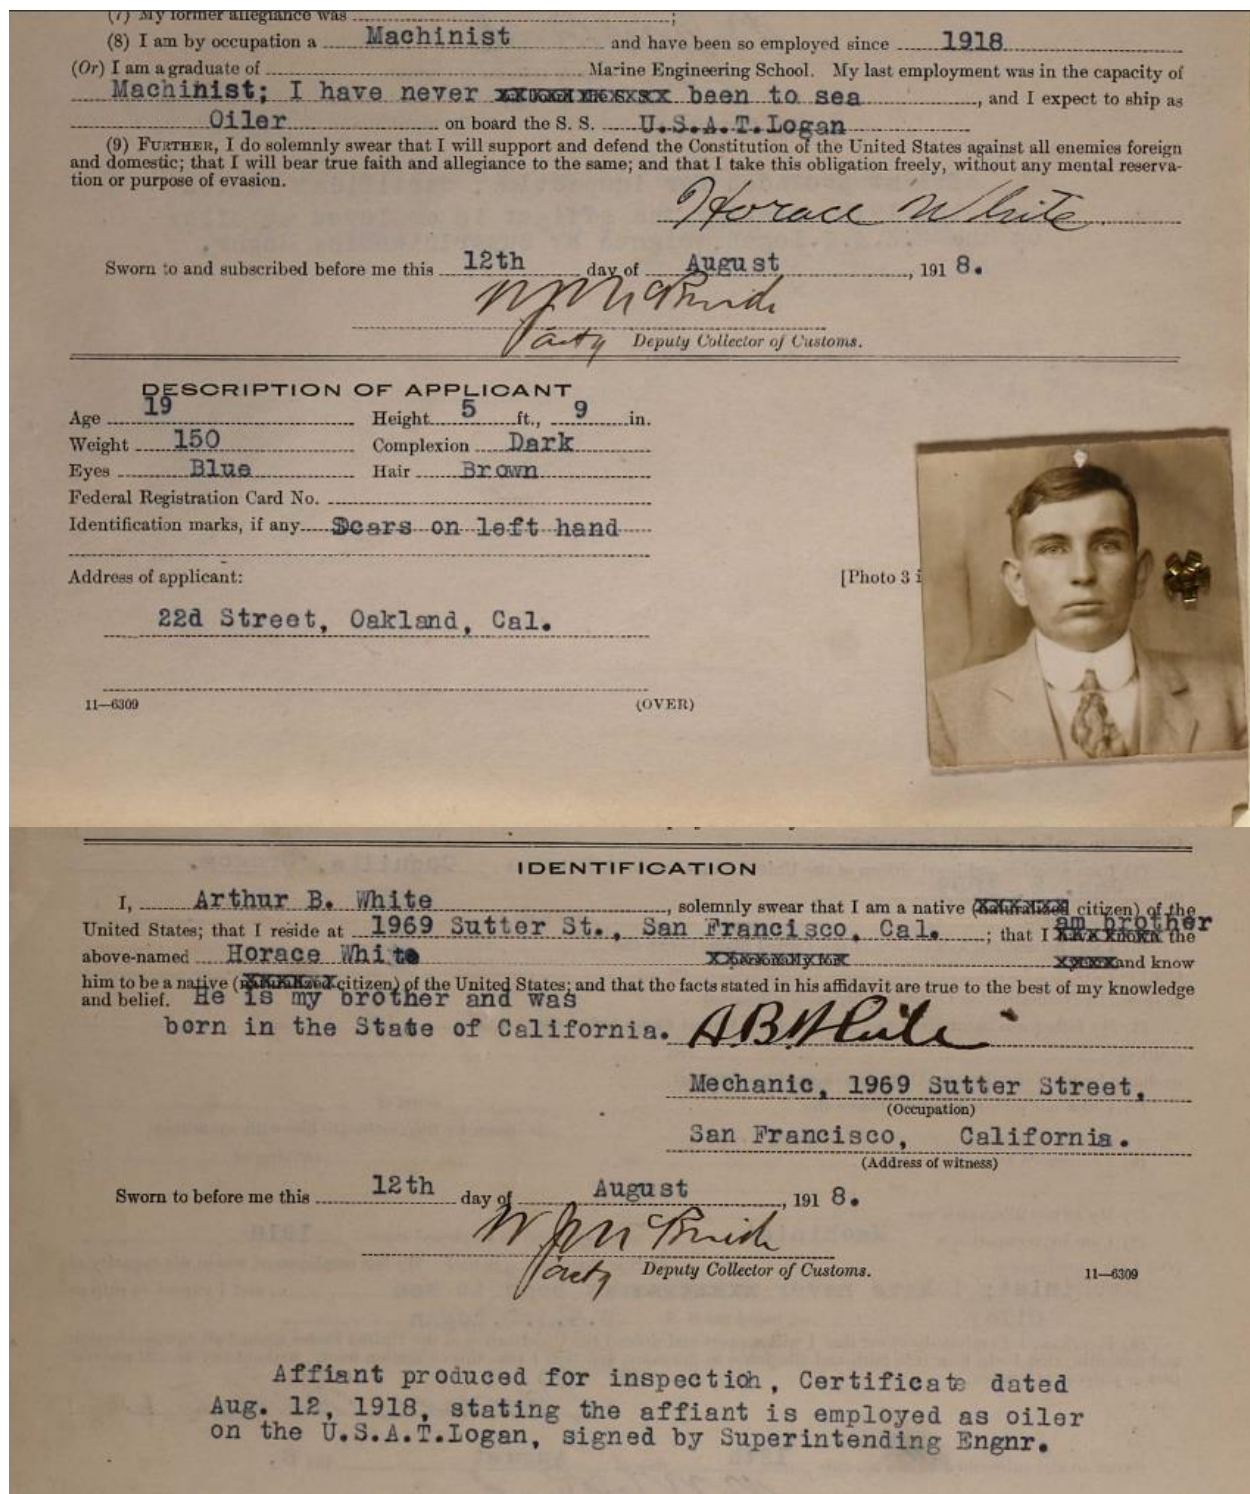 (7) My former allegiance was ;
(8) I am by occupation a Machinist and have been so employed since 1918
(Or) I am a graduate of Marine Engineering School. My last employment was in the capacity of
Machinist; I have never been to sea, and I expect to ship as
Oiler on board the S. S. U.S.A.T.Logan
(9) FURTHER, I do solemnly swear that I will support and defend the Constitution of the United States against all enemies foreign
and domestic; that I will bear true faith and allegiance to the same; and that I take this obligation freely, without any mental reserva-
tion or purpose of evasion.
Horace White
Sworn to and subscribed before me this 12th day of August, 1918.
Deputy Collector of Customs.
DESCRIPTION OF APPLICANT
Age 19 Height 5 ft., 9 in.
Weight 150 Complexion Dark
Eyes Blue Hair Brown
Federal Registration Card No.
Identification marks, if any Scars on left hand
Address of applicant:
[Photo 3 i
22d Street, Oakland, Cal.
11—6309 (OVER)
IDENTIFICATION
I, Arthur B. White, solemnly swear that I am a native ( citizen) of the
United States; that I reside at 1969 Sutter St., San Francisco, Cal. ; that I am brother the
above-named Horace White and know
him to be a native ( citizen) of the United States; and that the facts stated in his affidavit are true to the best of my knowledge
and belief. He is my brother and was
born in the State of California. A B White
Mechanic, 1969 Sutter Street,
(Occupation)
San Francisco, California.
(Address of witness)
Sworn to before me this 12th day of August, 1918.
Deputy Collector of Customs. 11—6309
Affiant produced for inspection, Certificate dated
Aug. 12, 1918, stating the affiant is employed as oiler
on the U.S.A.T.Logan, signed by Superintending Engnr.